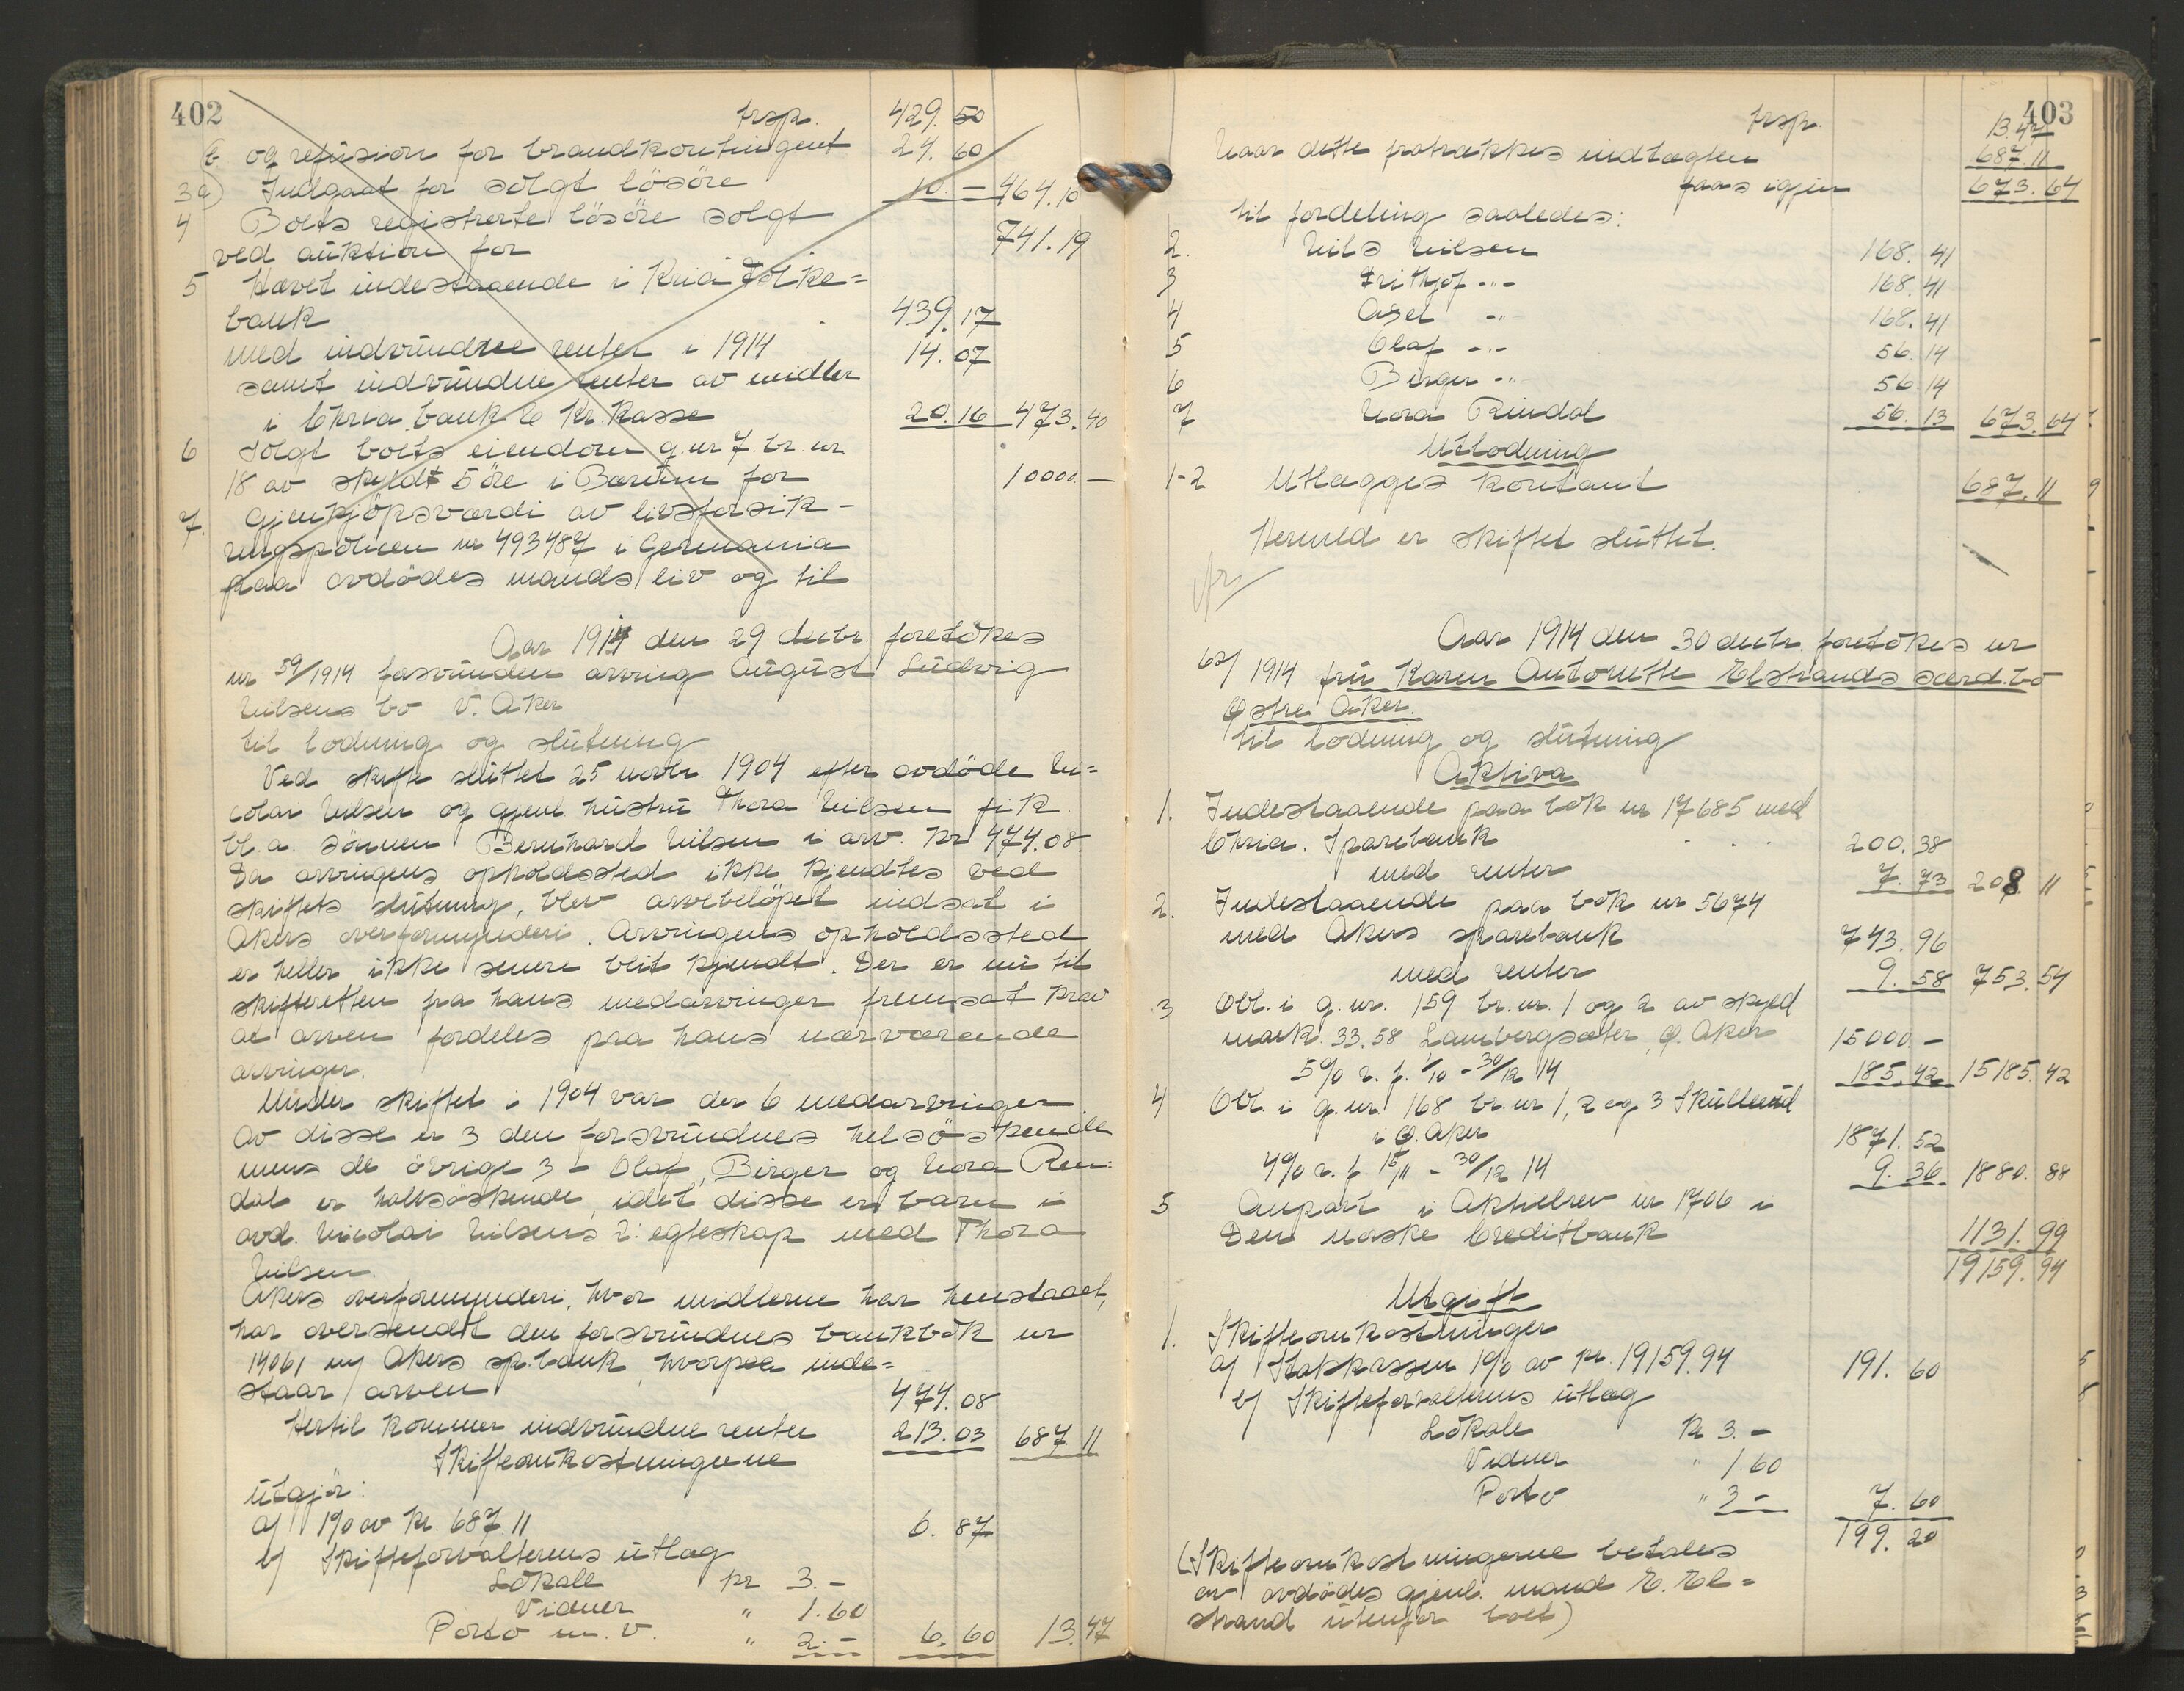 402
trsp. 429.50
b og refusion for brandkontingent 24.60
3a) Indgaat for solgt lösöre 10.— 464.10
4 Boets registrerte lösöre solgt
ved auktion for 741.19
5 Hævet indestaaende i Kria Folke=
bank 439.17
med indvundne renter i 1914 14.07
samt indvundne renter av midler
i Chria bank & Kr. Kasse 20.16 473.40
6 Solgt boets eiendom g.nr 7 br. nr
18 av skyld 5 öre i Bærum for 10000.—
7. Gjenkjöpsværdi av livsforsik-
ringspolicen nr 493487 i Germania
paa avdödes mands liv og til
Aar 1914 den 29 decbr. foretokes
nr 59/1914 forsvunden arving August Ludvig
Nilsens bo V. Aker
til lodning og slutning
Ved skifte sluttet 25 novbr. 1904 efter avdöde Ni=
colai Nilsen og gjenl hustru Thora Nilsen fik
bl.a. sönnen Bernhard Nilsen i arv. kr 474.08.
Da arvingens opholdssted ikke kjendtes ved
skiftets slutning, blev arvebelöpet indsat i
Akers overformynderi. Arvingens opholdssted
er heller ikke senere blit kjendt. Der er nu til
skifteretten fra hans medarvinger fremsat krav
at arven fordeles paa hans nærværende
arvinger.
Under skiftet i 1904 var der 6 medarvinger
Av disse er 3 den forsvundnes helsöskende
mens de övrige 3 - Olaf, Birger og Nora Rin-
dal er halvsöskende, idet disse er barn i
avd. Nicolai Nilsens 2. egteskap med Thora
Nilsen.
Akers overformynderi, hvor midlerne har henstaaet,
har oversendt den forsvundnes bankbok nr
14061 m/ Akers sp.bank, hvorpaa inde=
staar arven 474.08
Hertil kommer indvundne renter 213.03 687.11
Skifteomkostningerne
utgjör:
a/ 1% av kr. 687.11 6.87
b/ Skifteforvalterens utlæg
Lokale kr 3.-
Vidner " 1.60
Porto m.v. " 2.- 6.60 13.47
403
trsp. 13.47
Naar dette fratrækkes indtægten 687.11
faas igjen 673.64
til fordeling saaledes:
2. Nils Nilsen 168.41
3 Frithjof -"- 168.41
4 Axel -"- 168.41
5 Olaf -"- 56.14
6 Birger -"- 56.14
7 Nora Rindal 56.13 673.64
Utlodning
1-2 Utlægges kontant 687.11
Hermed er skiftet sluttet.
Aar 1914 den 30 decbr. foretokes nr
62/1914 fru Karen Antonette Elstrands særd.bo
Östre Aker.
til lodning og slutning
Aktiva
1. Indestaaende paa bok nr 17685 med
Chria. Sparebank 200.38
med renter 7.73 208.11
2. Indestaaende paa bok nr 5674
med Akers sparebank 743.96
med renter 9.58 753.54
3 Obl. i g.nr. 159 br.nr. 1 og 2 av skyld
mark 33.58 Lambergsæter, Ö. Aker 15000.-
5% r. f. 1/10 - 30/12 14 185.42 15185.42
4 Obl. i g.nr. 168 br.nr 1, 2 og 3 Skullerud
i Ö. Aker 1871.52
4% r. f 15/11 - 30/12 14 9.36 1880.88
5 Anpart i Aktiebrev nr 1706 i
Den norske Creditbank 1131.99
19159.94
Utgift
1. Skifteomkostninger
a/ Statskassen 1% av kr. 19159.94 191.60
b/ Skifteforvalterens utlæg
Lokale kr 3.-
Vidner " 1.60
Porto " 3- 7.60
199.20
(Skifteomkostningerne betales
av avdödes gjenl. mand E. El=
strand utenfor boet)